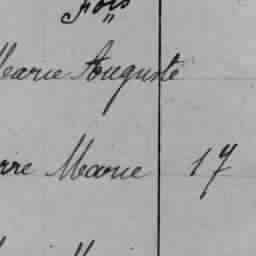 Fois
Marie Auguste
rre Marie 17